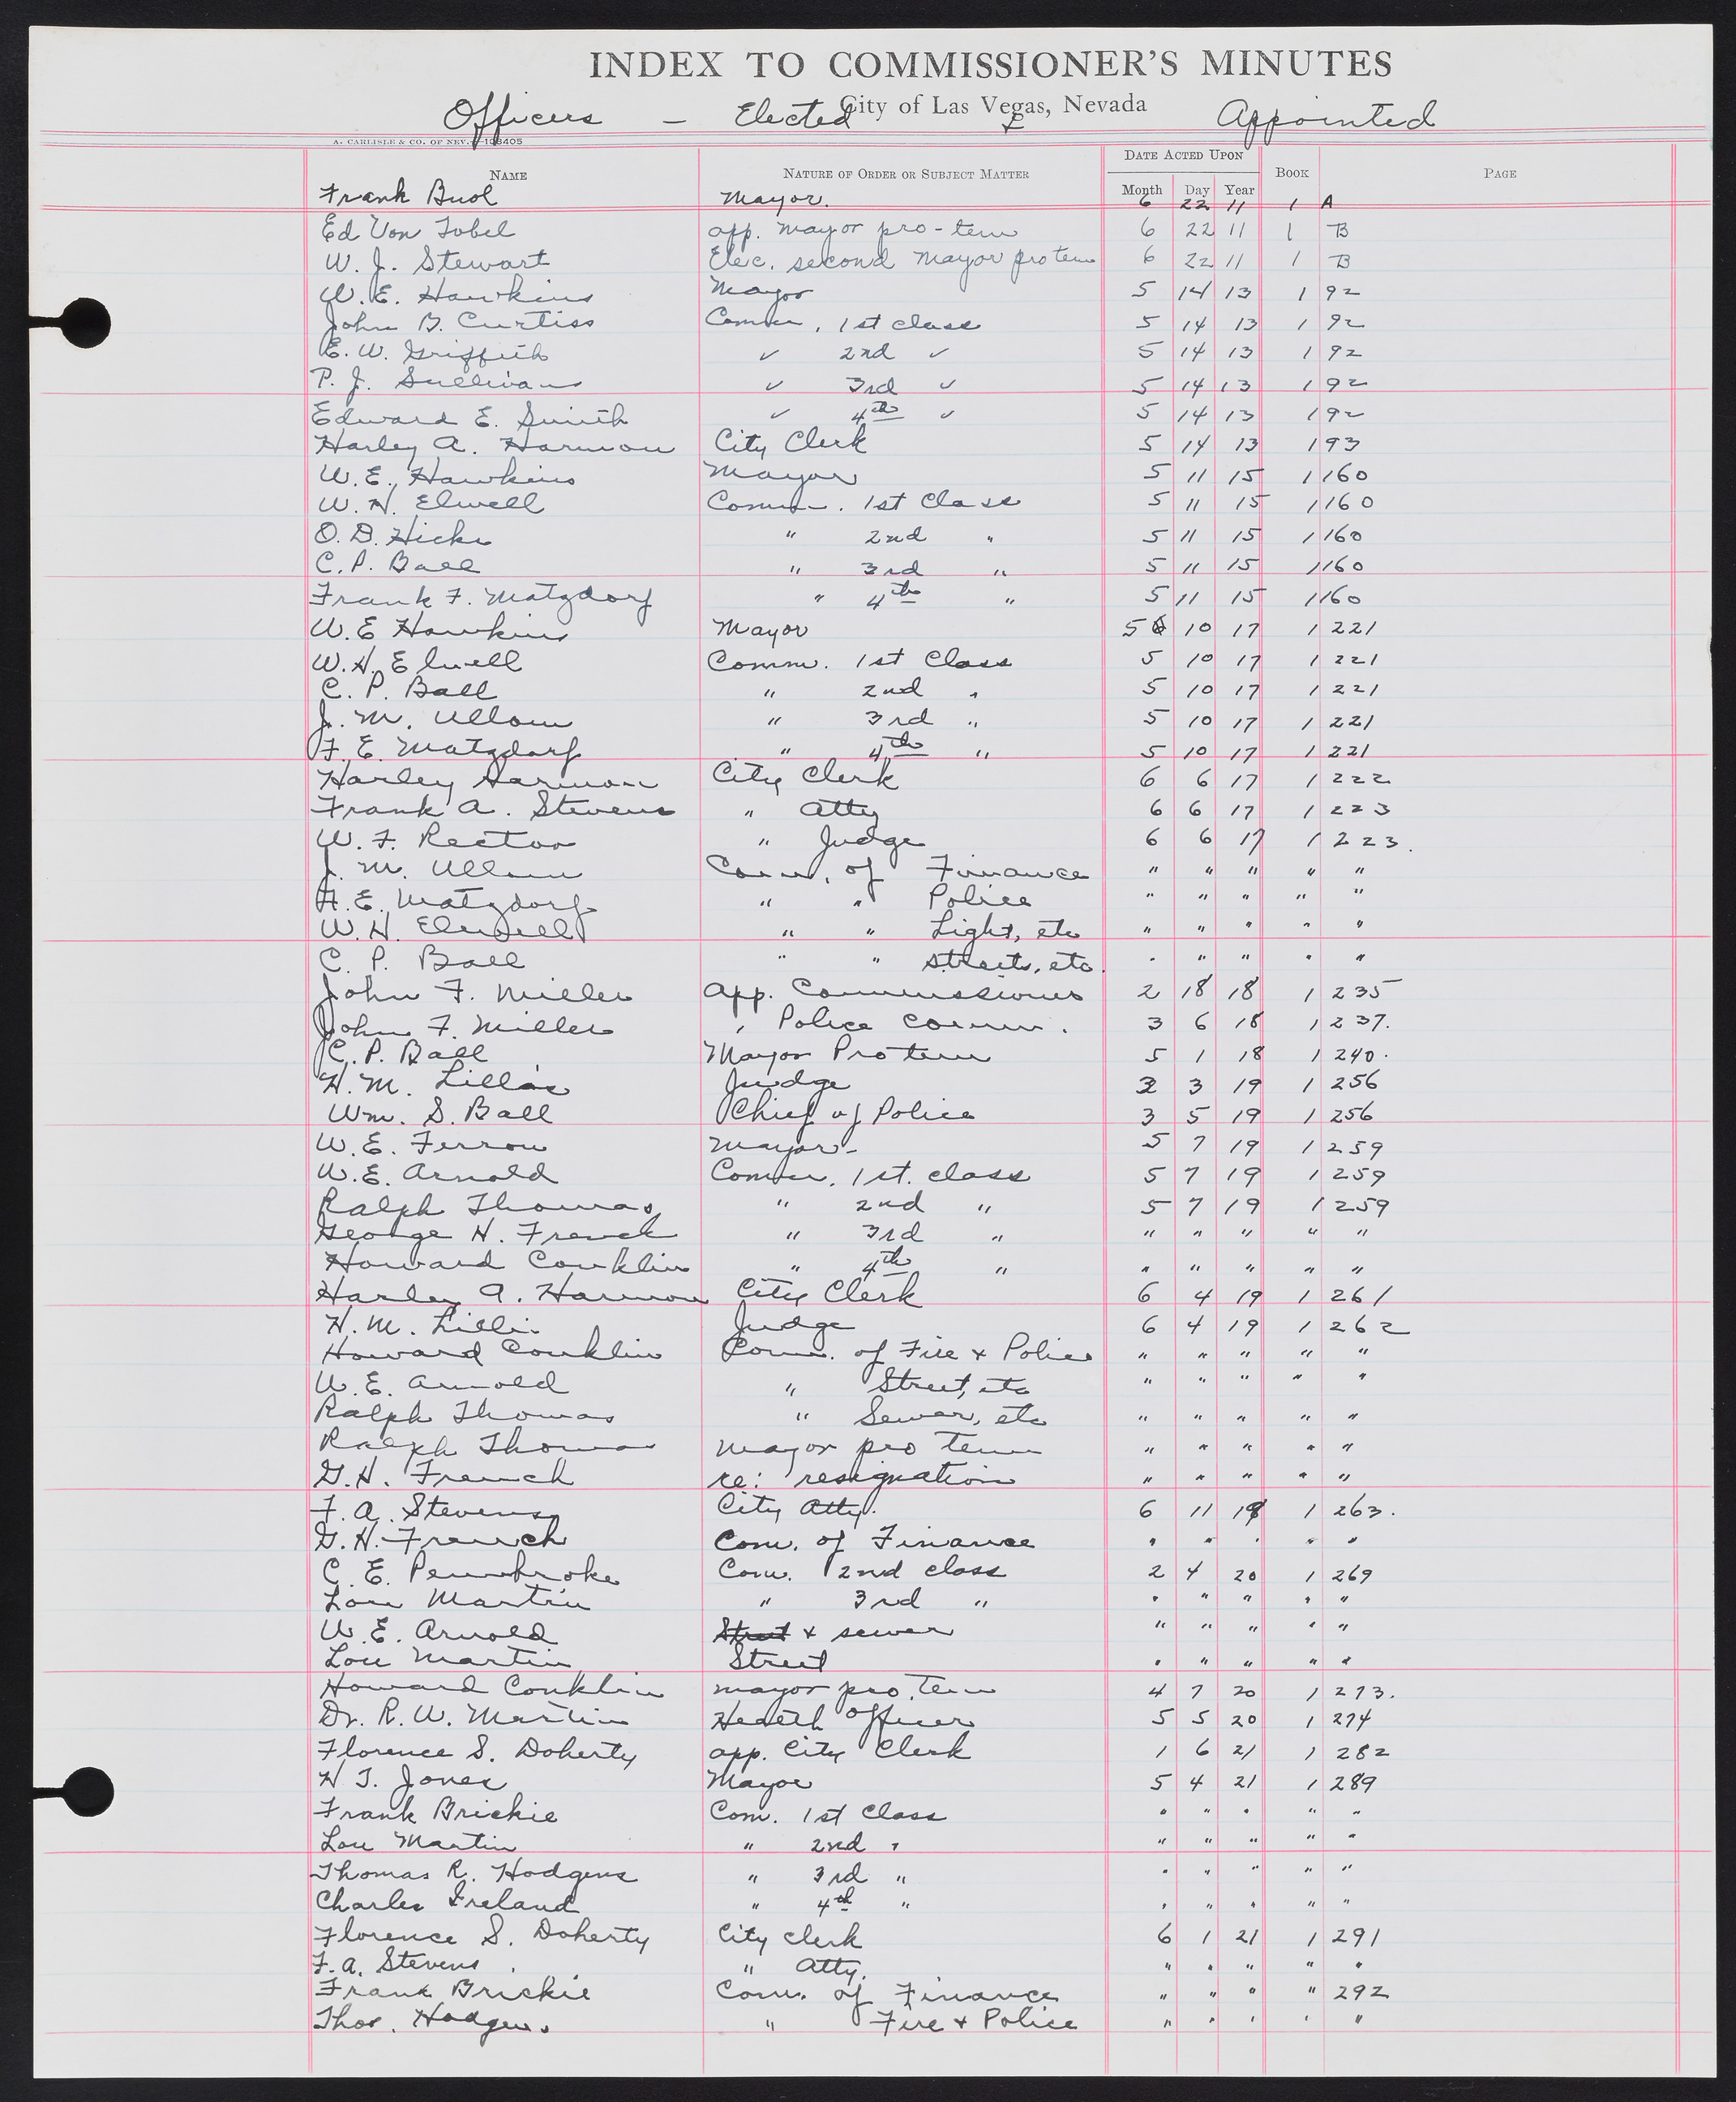 INDEX TO COMMISSIONER'S MINUTES
City of Las Vegas, Nevada
Officers - Elected & Appointed
A. CARLISLE & CO. OF NEV.
NAME NATURE OF ORDER OR SUBJECT MATTER DATE ACTED UPON Month Day Year BOOK PAGE
Frank Buol Mayor. 6 22 11 1 A
Ed Von Tobel app. mayor pro-tem 6 22 11 1 B
W. J. Stewart Elec. second Mayor protem 6 22 11 1 B
W. E. Hawkins Mayor 5 14 13 1 92
John B. Curtiss Comm. 1st class 5 14 13 1 92
E. W. Griffith ✓ 2nd ✓ 5 14 13 1 92
P. J. Sullivan ✓ 3rd ✓ 5 14 13 1 92
Edward E. Smith ✓ 4th ✓ 5 14 13 1 92
Harley A. Harmon City Clerk 5 14 13 1 93
W. E. Hawkins Mayor 5 11 15 1 160
W. H. Elwell Comm. 1st Class 5 11 15 1 160
O. D. Hicks " 2nd " 5 11 15 1 160
C. P. Ball " 3rd " 5 11 15 1 160
Frank F. Matzdorf " 4th " 5 11 15 1 160
W. E Hawkins Mayor 5 10 17 1 221
W. H. Elwell Comm. 1st Class 5 10 17 1 221
C. P. Ball " 2nd " 5 10 17 1 221
J. M. Ullom " 3rd " 5 10 17 1 221
F. E. Matzdorf " 4th " 5 10 17 1 221
Harley Harmon City Clerk 6 6 17 1 222
Frank A. Stevens " Atty 6 6 17 1 223
W. F. Rector " Judge 6 6 17 1 223.
J. M. Ullom Com. of Finance " " " " "
F. E. Matzdorf " " Police " " " " "
W. H. Elwell " " Light, etc " " " " "
C. P. Ball " " streets, etc. " " " " "
John F. Miller app. Commissioner 2 18 18 1 235
John F. Miller " Police Comm. 3 6 18 1 237.
C. P. Ball Mayor Protem 5 1 18 1 240.
H. M. Lillis Judge 3 3 19 1 256
Wm. S. Ball Chief of Police 3 5 19 1 256
W. E. Ferron Mayor- 5 7 19 1 259
W. E. Arnold Comm. 1st. class 5 7 19 1 259
Ralph Thomas " 2nd " 5 7 19 1 259
George H. French " 3rd " " " " " "
Howard Conklin " 4th " " " " " "
Harley A. Harmon City Clerk 6 4 19 1 261
H. M. Lillis Judge 6 4 19 1 262
Howard Conklin Com. of Fire & Police " " " " "
W. E. Arnold " Street, etc " " " " "
Ralph Thomas " Sewer, etc " " " " "
Ralph Thomas mayor pro tem " " " " "
G. H. French re: resignation " " " " "
F. A. Stevens City Atty. 6 11 19 1 263.
G. H. French Com. of Finance " " " " "
C. E. Pembroke Com. 2nd class 2 4 20 1 269
Lou Martin " 3rd " " " " " "
W. E. Arnold Street & sewer " " " " "
Lou Martin Street " " " " "
Howard Conklin mayor pro. tem 4 7 20 1 273.
Dr. R. W. Martin Health Officer 5 5 20 1 274
Florence S. Doherty app. City Clerk 1 6 21 1 282
W T. Jones Mayor 5 4 21 1 289
Frank Brickie Com. 1st Class " " " " "
Lou Martin " 2nd " " " " " "
Thomas R. Hodgens " 3rd " " " " " "
Charles Ireland " 4th " " " " " "
Florence S. Doherty City clerk 6 1 21 1 291
F. A. Stevens " Atty. " " " " "
Frank Brickie Com. of Finance " " " " 292
Thos. Hodgens " Fire & Police " " " " "